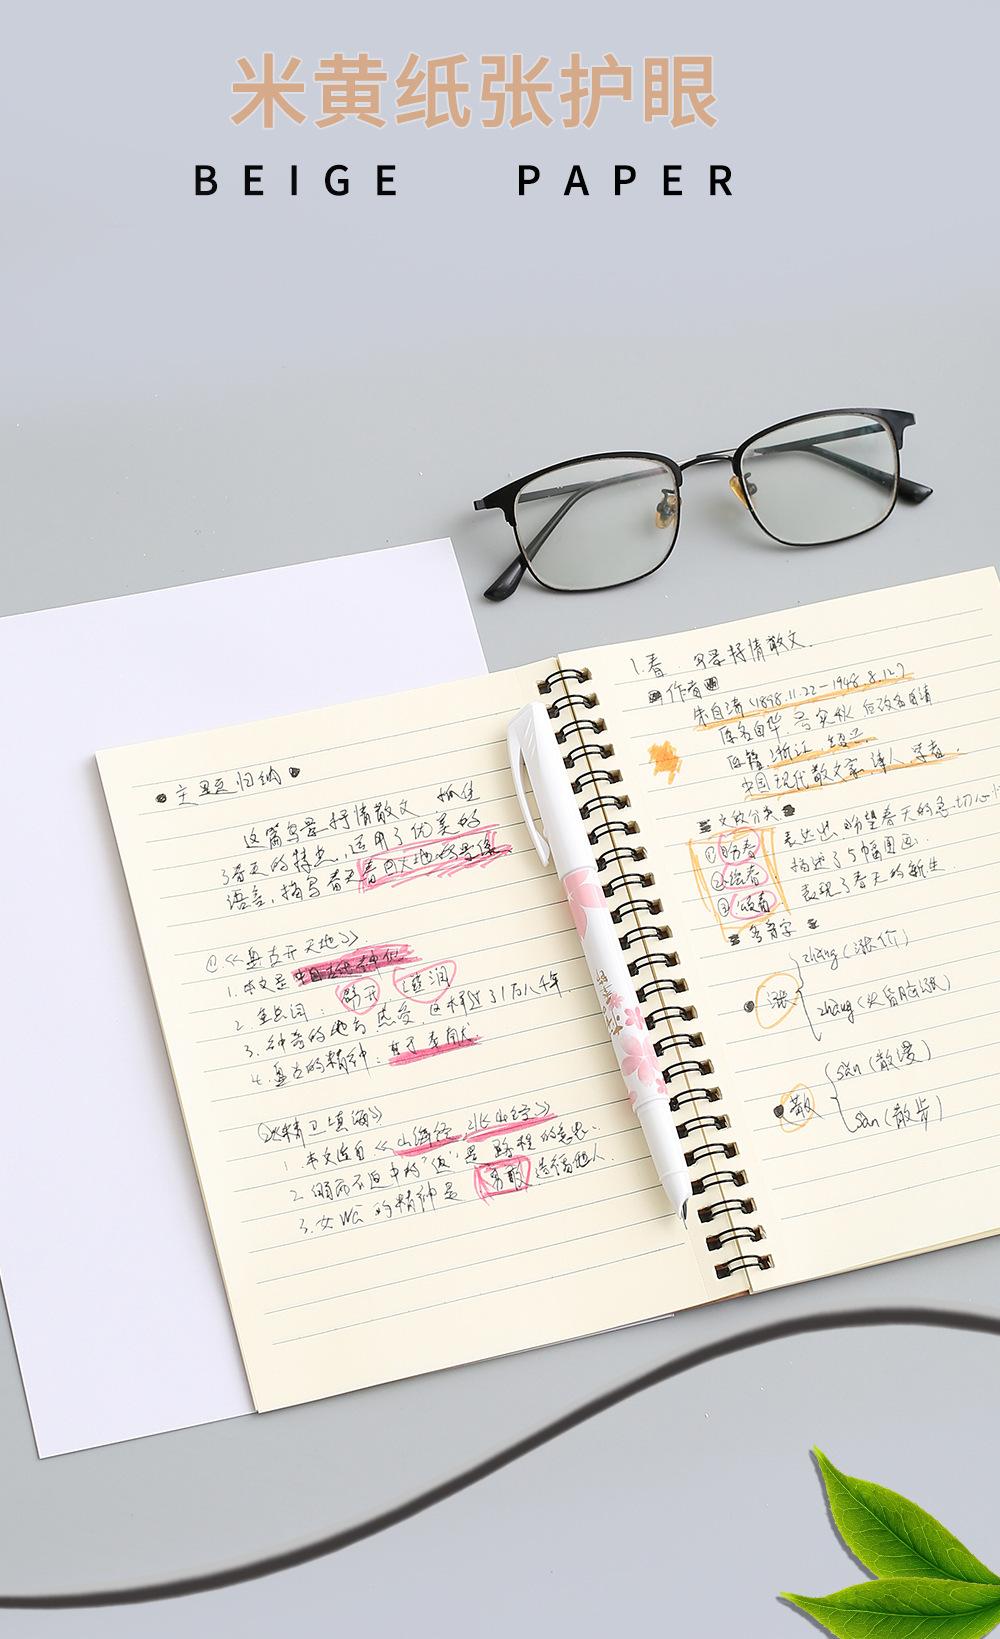 米黄纸张护眼
BEIGE PAPER
主题归纳
这篇写景抒情散文 抓住
了春天的特点，运用了优美的
语言，描写春天
①.《盘古开天地》.
1.本文是
2.重点词：
3.神奇的地方
4.盘古的精神：
②《精卫填海》
1.本文选自《山海经 北山经》
2.
3.女wā的精神是 勇敢 造福他人.
1.春. 写景抒情散文.
作者
朱自清(1898.11.22-1948.8.12)
原名自华. 号实秋 后改名自清
原籍浙江.绍兴.
中国现代散文家.诗人.学者.
文段分类
①盼春 表达出盼望春天的急切心
②绘春. 描述了5幅图画.
③颂春 表现了春天的新生.
多音字
涨 zhǎng(涨价)
zhàng(头昏脑涨)
散 sǎn(散漫)
sàn(散步)